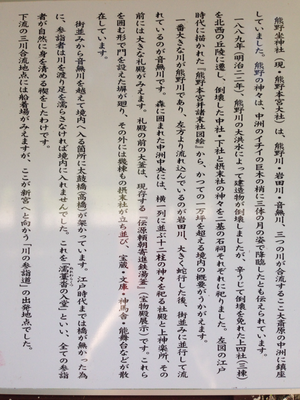 熊野坐神社(現・熊野本宮大社)は、熊野川・岩田川・音無川、三つの川が合流するここ大斎原の中洲に鎮座
していました。熊野の神々は、中洲のイチイの巨木の梢に三体の月の姿で降臨したとも伝えられています。
一八八九年(明治二二年)、熊野川の大洪水によって建造物が倒壊しましたが、辛うじて倒壊を免れた上四社(三棟)
を北西の丘陵に遷し、倒壊した中社・下社と摂末社の神々を二基の石祠それぞれに祀りました。左図の江戸
時代に描かれた「熊野本宮并諸末社図絵」から、かつての一万坪を超える境内の概要がうかがえます。
一番大きな川が熊野川であり、左方より流れ込んでいるのが岩田川、大きく蛇行した後、街並みに並行して流
れているのが音無川です。森に囲まれた中洲中央には、横一列に並ぶ十二柱の神々を祀る社殿と上神楽所、その
前には大きな礼殿がみえます。礼殿の前の大釜は、現存する「伝源頼朝寄進鉄湯釜」(宝物殿展示)です。これら
を囲む形で門を設えた塀が廻り、その外には幾棟もの摂末社が立ち並び、宝蔵・文庫・神馬舎・能舞台などが散
在しています。
街並みから音無川を越えて境内へ入る箇所に太鼓橋(高橋)が架かっています。江戸時代までは橋が無かった為
に、参詣者は川を渡り足を濡らさなければ境内に入れませんでした。これを「濡藁沓の入堂」といい、全ての参詣
者が自然に身を清める禊をしたわけです。
下流の三川合流地点には船着場がみえますが、ここが新宮へと向かう「川の参詣道」の出発地点でした。